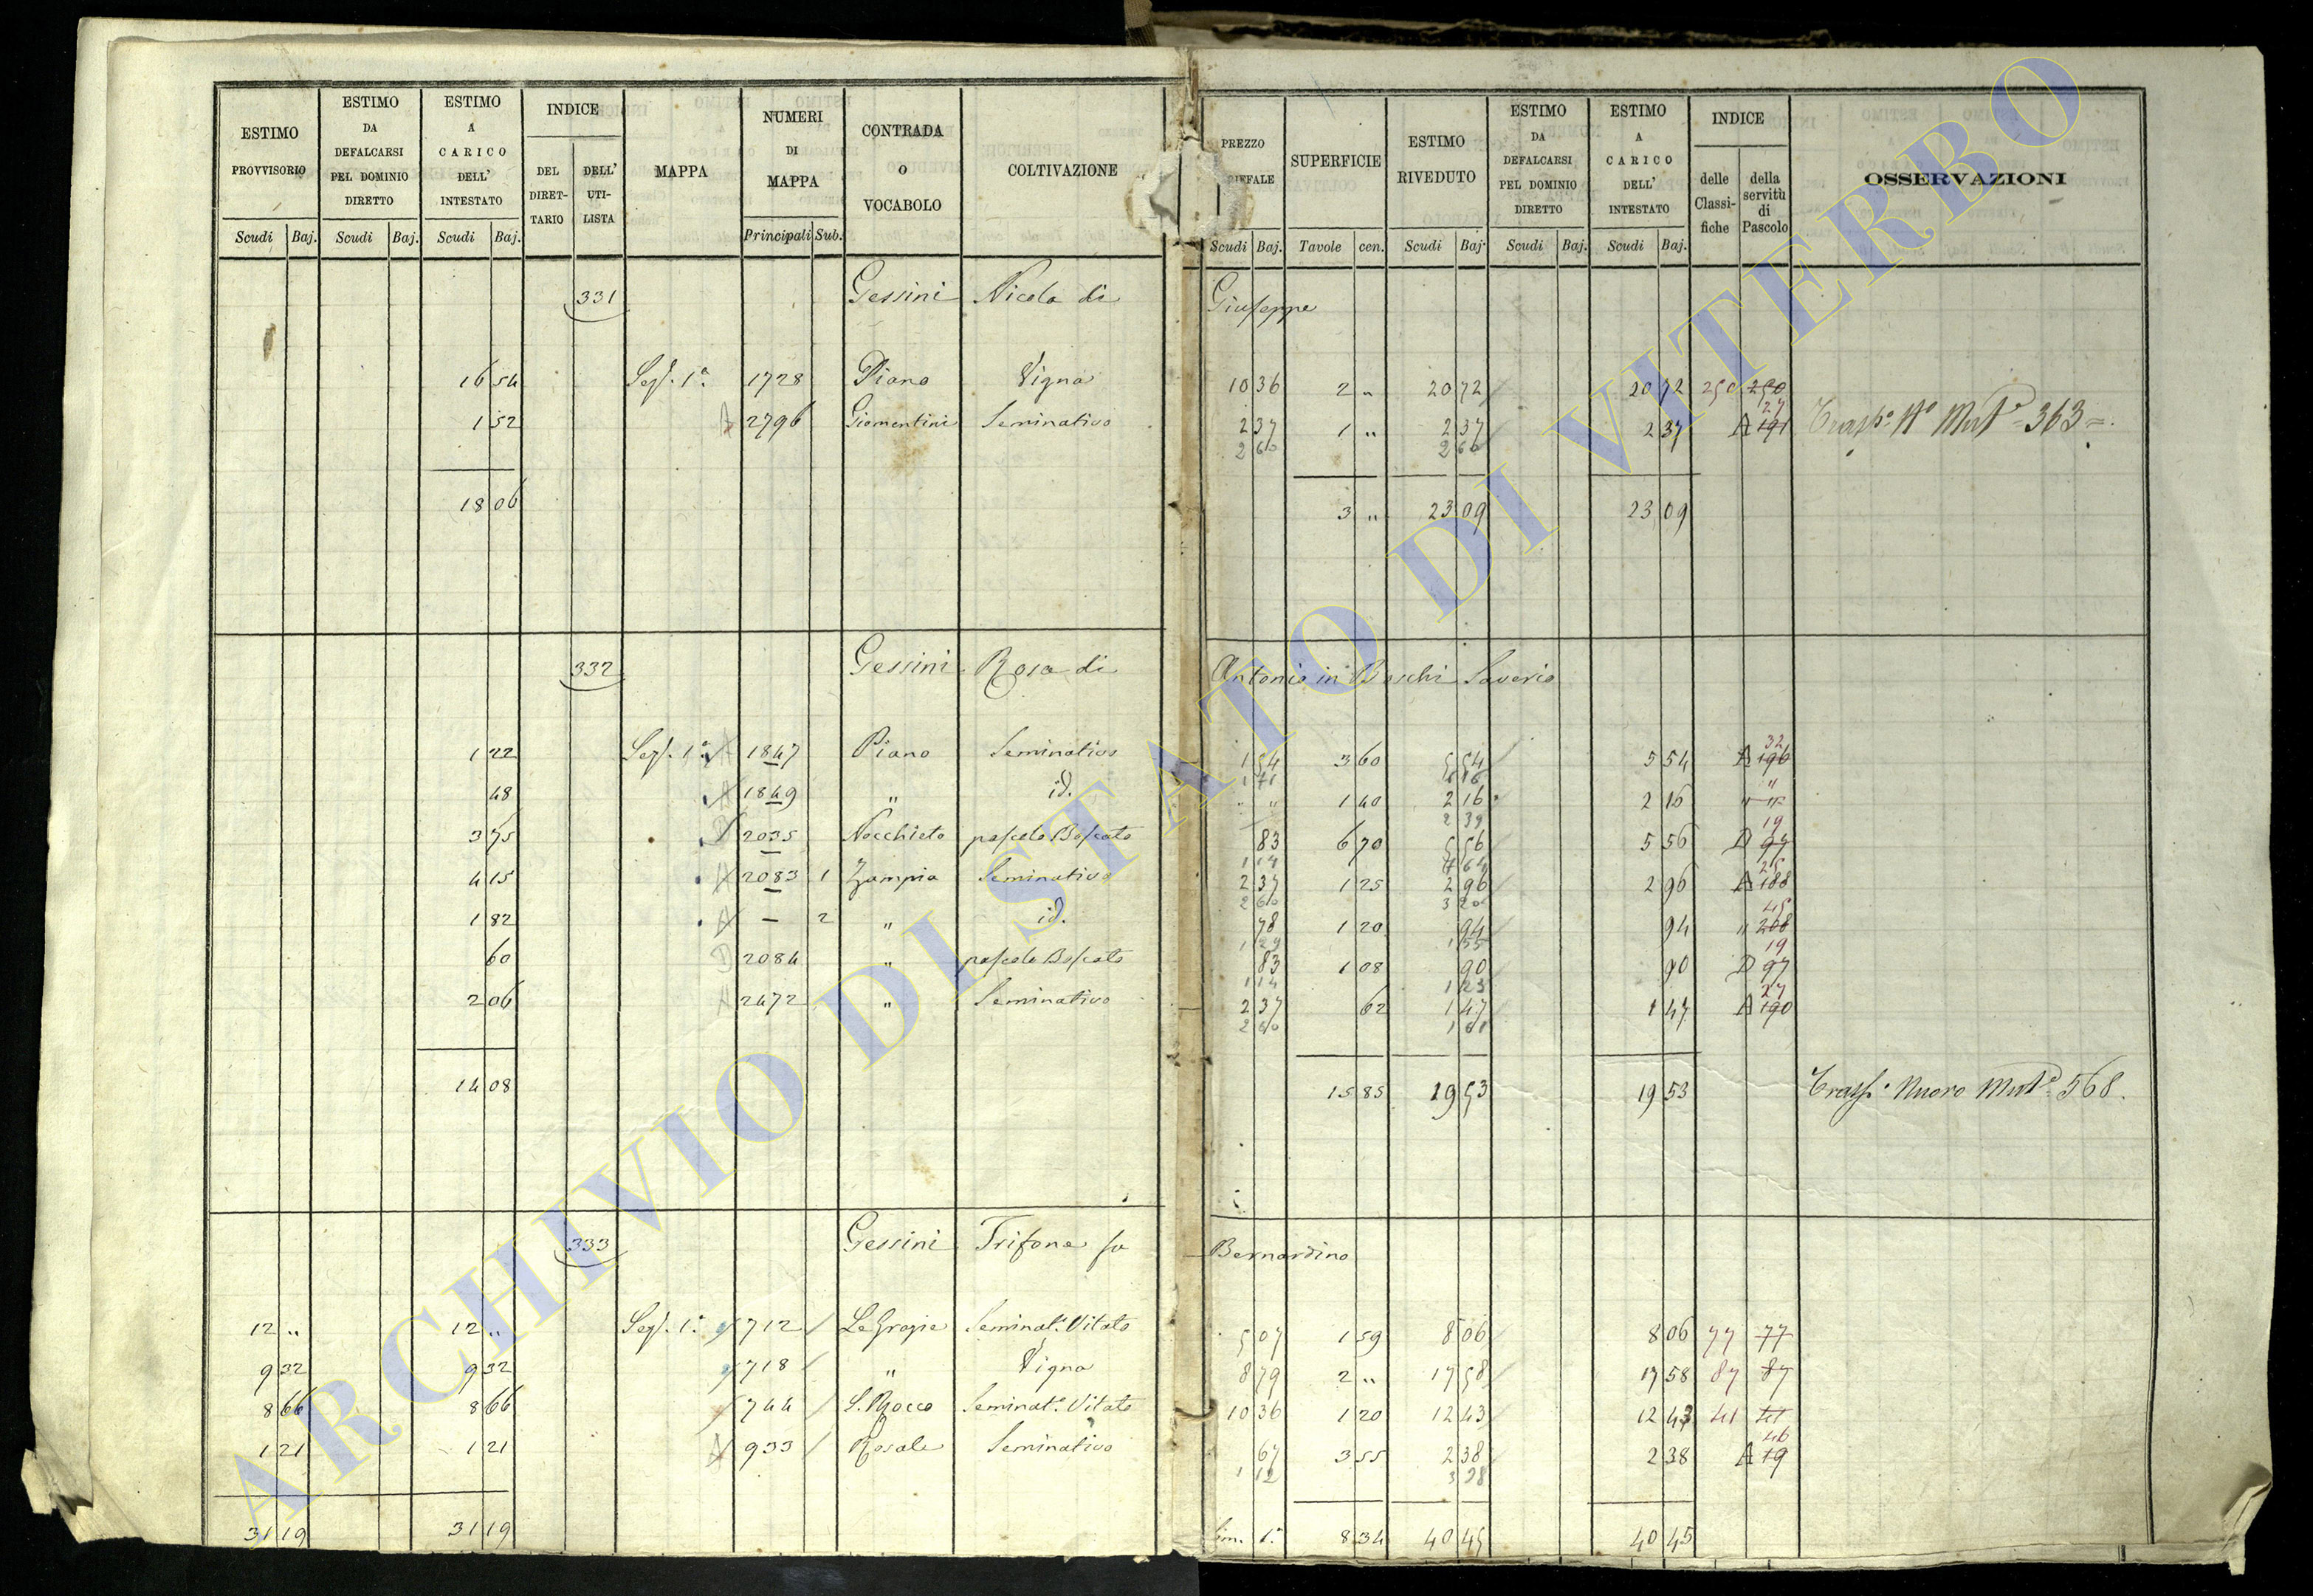 ESTIMO PROVVISORIO
ESTIMO DA DEFALCARSI PEL DOMINIO DIRETTO
ESTIMO A CARICO DELL' INTESTATO
INDICE
DEL DIRET-TARIO
DELL' UTI-LISTA
MAPPA
NUMERI DI MAPPA
CONTRADA O VOCABOLO
COLTIVAZIONE
PREZZO
SUPERFICIE
ESTIMO RIVEDUTO
ESTIMO DA DEFALCARSI PEL DOMINIO DIRETTO
ESTIMO A CARICO DELL' INTESTATO
INDICE
delle Classi-fiche
della servitù di Pascolo
OSSERVAZIONI
Scudi Baj. Scudi Baj. Scudi Baj. Principali Sub. Scudi Baj. Tavole cen. Scudi Baj. Scudi Baj. Scudi Baj.
331 Gessini Nicola di Giuseppe
16 54 Sez. 1a. 1728 Piano Vigna 10 36 2 " 20 72 20 72 250 250
27
1 52 A 2796 Giomentini Seminativo 2 37 1 " 2 37 2 37 A 191
2 60 2 60
363
18 06 3 " 23 09 23 09
332 Gessini Rosa di Antonio in Boschi Saverio
32
1 22 Sez. 1a. A 1847 Piano Seminativo 1 54 3 60 5 54 5 54 A 196
1 71 6 16
48 A 1849 " id. " " 1 40 2 16 2 16 " "
2 39
19
3 75 D 2035 Nocchieto pascolo Boscato 83 6 70 5 56 5 56 D 97
1 14 7 64
25
4 15 A 2083 1 Zampia Seminativo 2 37 1 25 2 96 2 96 A 188
2 60 3 20
45
1 82 A — 2 " id. 78 1 20 94 94 " 208
1 29 1 55
19
60 D 2084 " pascolo Boscato 83 1 08 90 90 D 97
1 14 1 23
27
2 06 A 2472 " Seminativo 2 37 62 1 47 1 47 A 190
2 60 1 61
14 08 15 85 19 53 19 53 568.
333 Gessini Trifone fu Bernardino
12 " 12 " Sez. 1a. 712 Le Grazie Seminato. Vitato 5 07 1 59 8 06 8 06 77 77
9 32 9 32 718 " Vigna 8 79 2 " 17 58 17 58 87 87
8 66 8 66 744 S. Rocco Seminato. Vitato 10 36 1 20 12 43 12 43 41 41
46
1 21 1 21 A 933 Rosale Seminativo 67 3 55 2 38 2 38 A 19
1 12 3 98
31 19 31 19 8 34 40 45 40 45
ARCHIVIO DI STATO DI VITERBO